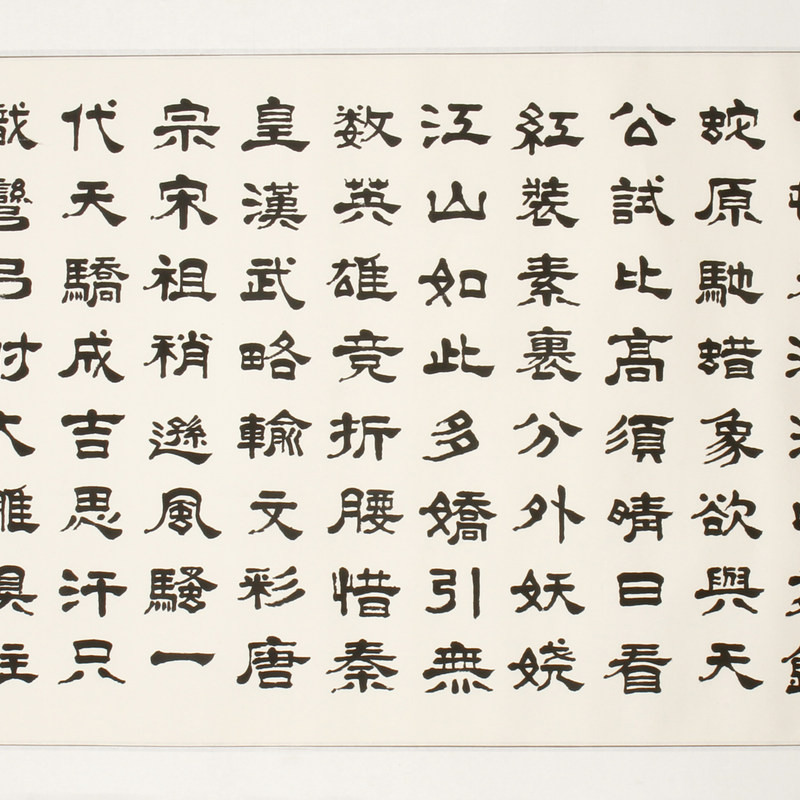 蛇原馳蜡象欲與天
公試比高須晴日看
紅装素裹分外妖娆
江山如此多嬌引無
数英雄竞折腰惜秦
皇漢武略輸文彩唐
宗宋祖稍遜風騷一
代天驕成吉思汗只
彎弓大